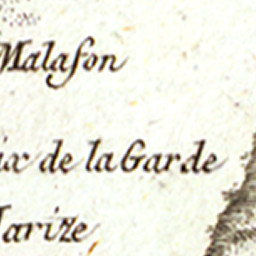 Malaſon
ix de la Garde
arize